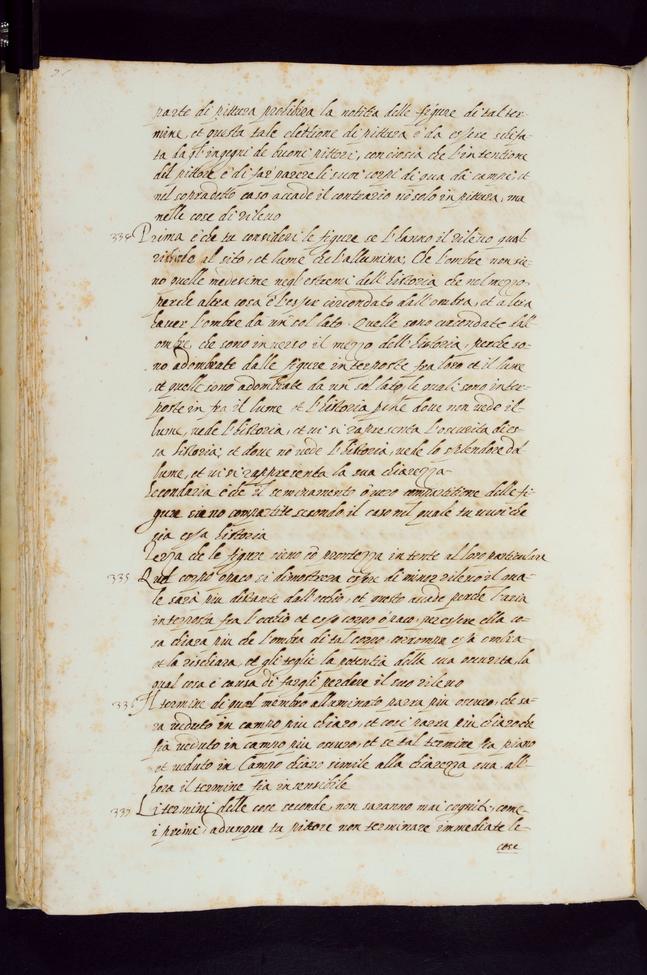 parte di pittura prohibira la notitia delle figure di tal ter-
mine, et questa tale elettione di pittura è da essere schifa-
ta da gl'ingegni de buoni pittori, conciosia che l'intentione
del pittore è di far parere li suoi corpi di qua da campi, et
nel sopradetto caso accade il contrario nō solo in pittura, ma
nelle cose di rilevo
334 Prima è che tu consideri le figure se l'hanno il rilevo qual
richiede al sito, et lume che l'allumina; Che l'ombre non sie-
no quelle medesime negl'estremi dell'historia che nel mezzo,
perche altra cosa è l'esser circondato dall'ombra, et altra
haver l'ombre da un sol lato. Quelle sono circondate dall'
ombre, che sono inverso il mezzo dell'historia, perche so-
no adombrate dalle figure interposte fra loro et il lume
, et quelle sono adombrate da un sol lato, le quali sono inter-
poste in fra il lume et l'historia, perche dove non vede il
lume, vede l'historia, et vi si rappresenta l'oscurità di es-
sa historia; et dove nō vede l'historia, vede lo splendore dal
lume, et vi si rappresenta la sua chiarezza
Secondaria è che il seminamento ò vero compartitione delle fi-
gure siano compartite secondo il caso nel quale tu vuoi che
sia essa historia
Terza che le figure sieno cō prontezza intente al loro particulare
335 Quel corpo opaco si dimostrera essere di minor rilevo il qua-
le sarà piu distante dall'occhio, et questo accade perche l'aria
interposta fra l'occhio et esso corpo opaco, per essere ella co-
sa chiara piu che l'ombra di tal corpo, corrompe essa ombra
et la rischiara, et gli toglie la potentia della sua oscurita, la
qual cosa è causa di fargli perdere il suo rilevo
336 Il termine di quel membro alluminato parra piu oscuro, che sa-
ra veduto in campo piu chiaro, et cosi parra piu chiaro che
fia veduto in campo piu oscuro, et se tal termine fia piano
et veduto in campo chiaro simile alla chiarezza sua, all'
hora il termine fia insensibile
337 Li termini delle cose seconde, non saranno mai cogniti, come
i primi, adunque tu pittore non terminare immediate le
cose